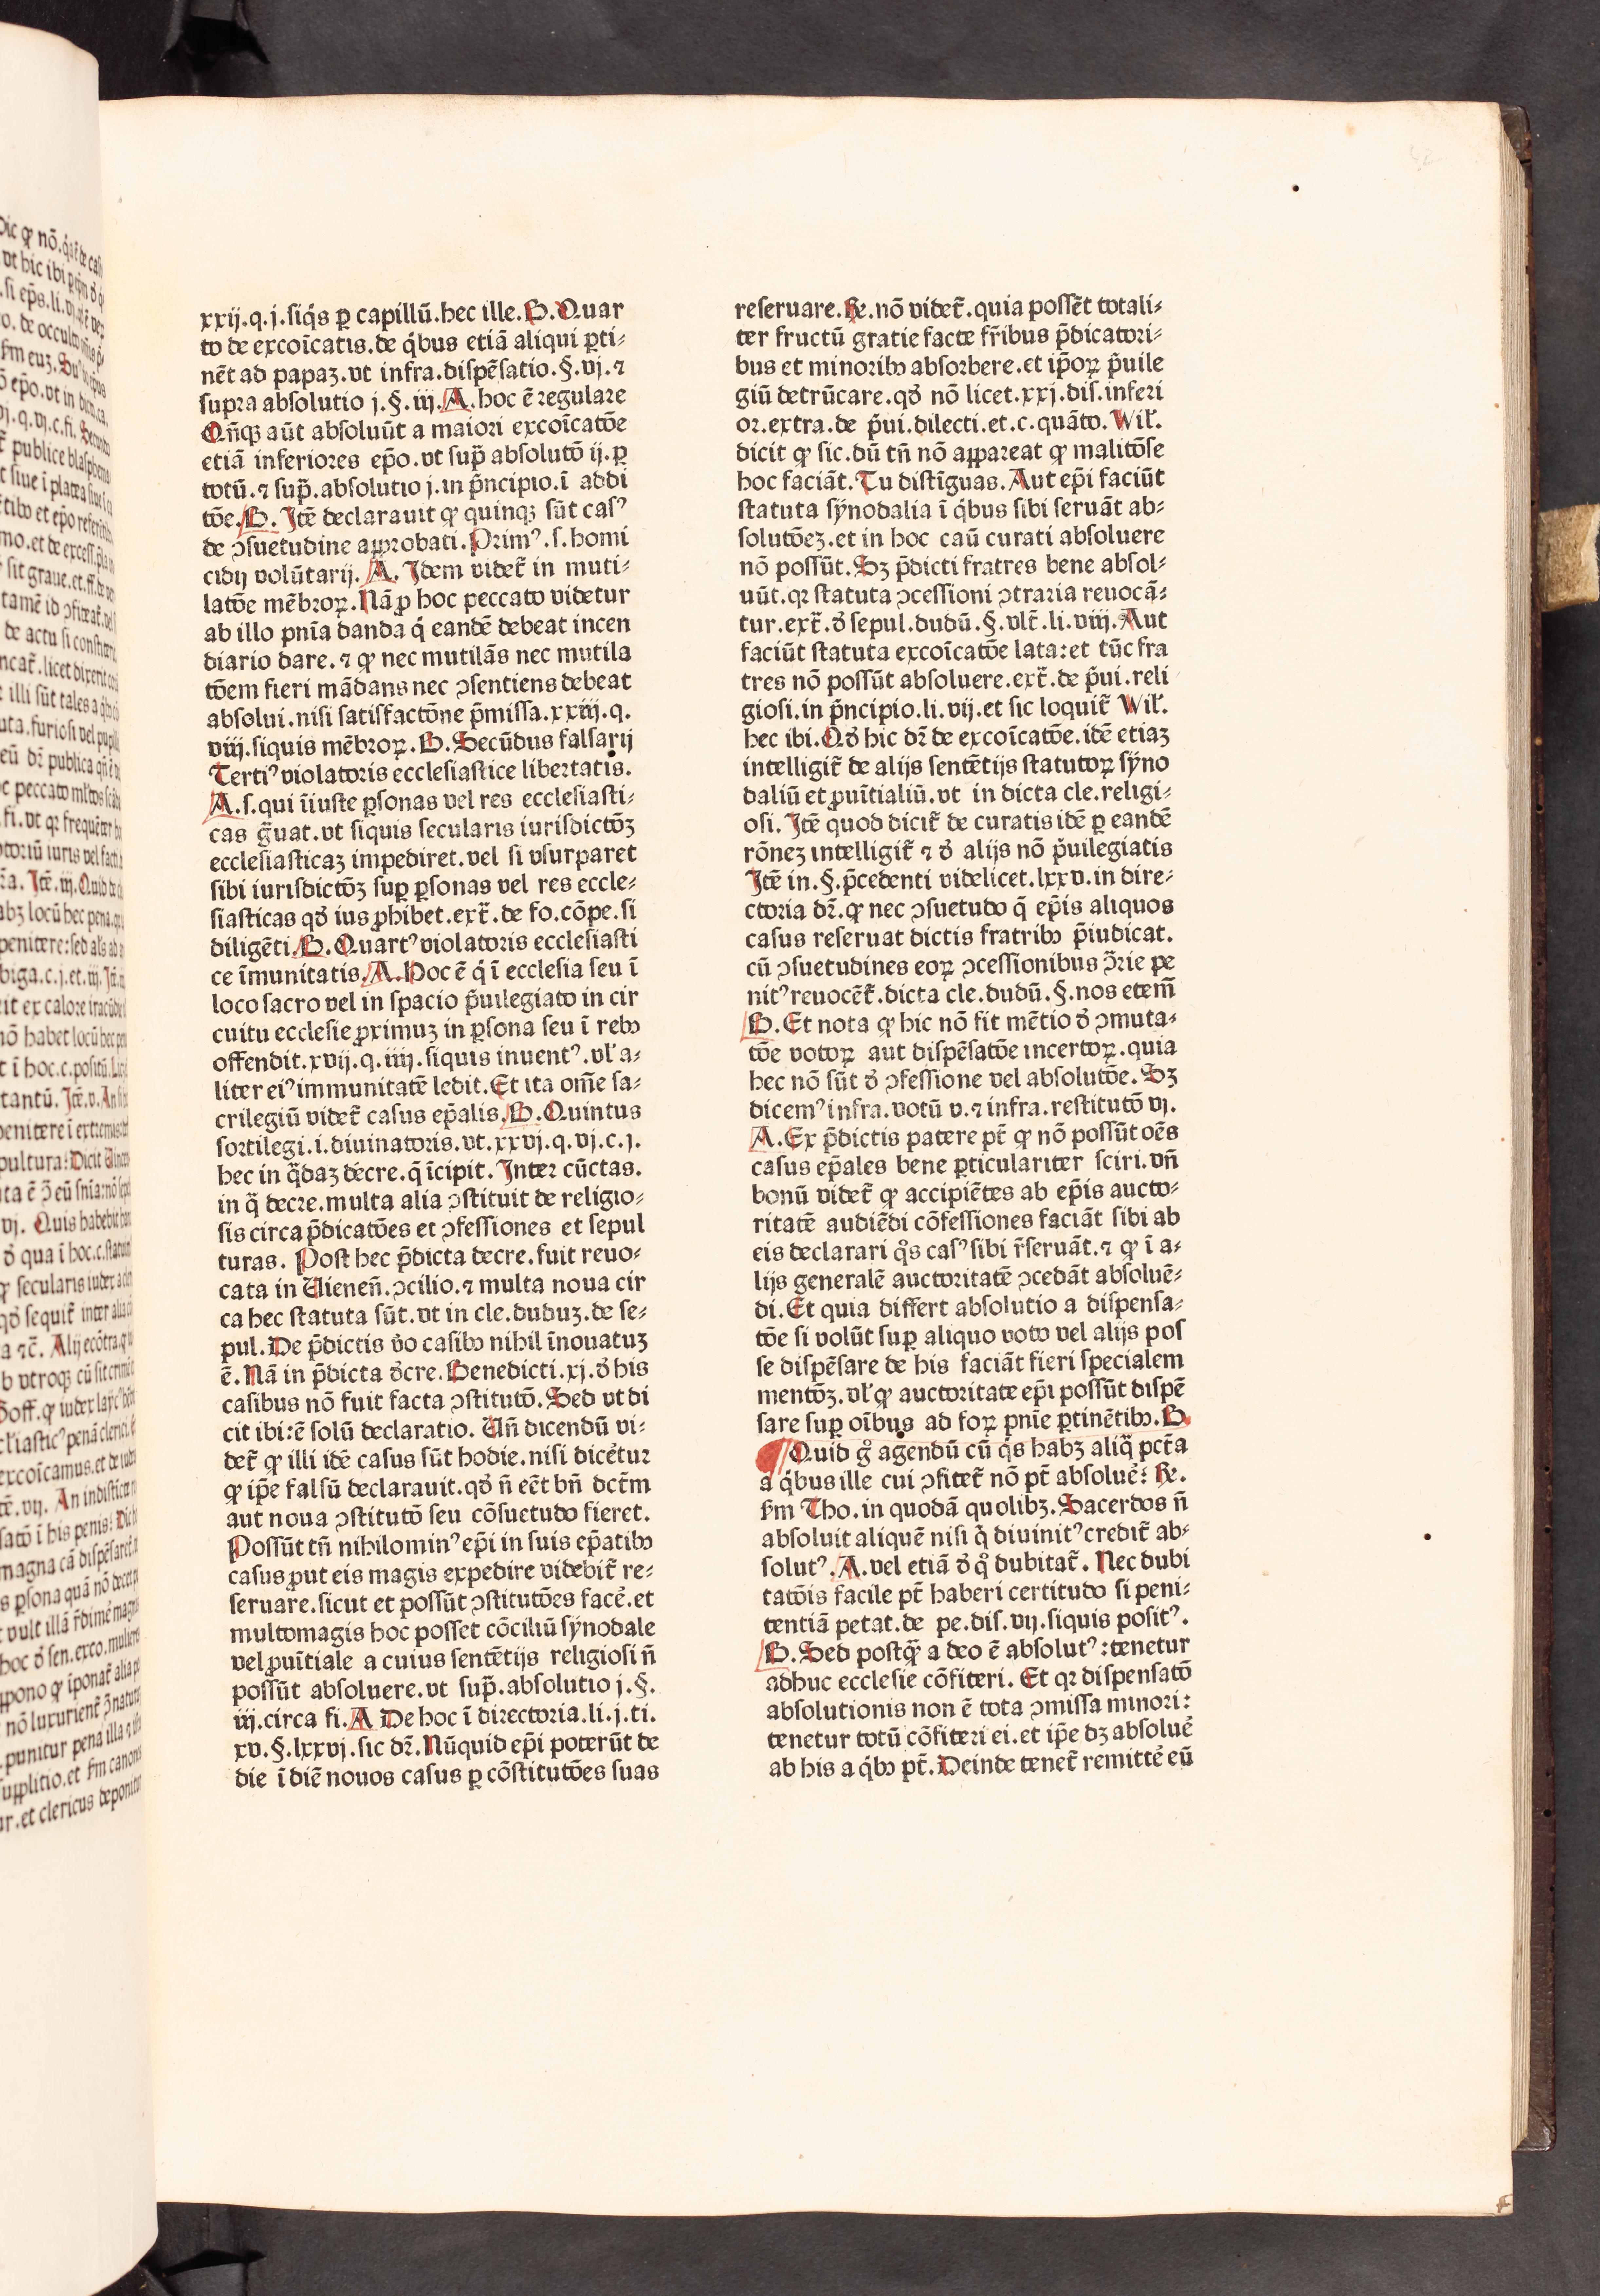 xxij.q.j.siq̇s ꝑ capillū.hec ille.B.Quar
to de excoīcatis.de q̇bus etiā aliqui ꝑti⸗
nēt ad papaꝫ.vt infra.dispēsatio.§.vj.⁊
supra absolutio j.§.iij.A.hoc ē regulare
Qn̄qꝫ aūt absoluūt a maiori excoīcatōe
etiā inferiores ep̄o.vt sup̄ absolutō ij.ꝑ
totū.⁊ sup̄.absolutio j.in pͥncipio.ī addi
tōe.B.Itē declarauit ꝙ quinqꝫ sūt casꝰ
de ↄsuetudine approbati.Primꝰ.s.homi
cidij volūtarij.A.Idem videt̄ in muti⸗
latōe mēbroꝝ.Nā ꝓ hoc peccato videtur
ab illo pnīa danda q̇ eandē debeat incen
diario dare.⁊ ꝙ nec mutilās nec mutila
tōem fieri mādans nec ↄsentiens debeat
absolui.nisi satisfactōne p̄missa.xxiij.q.
viij.siquis mēbroꝝ.B.Secūdus falsarij
Tertiꝰ violatoris ecclesiastice libertatis.
A.s.qui īiuste ꝑsonas vel res ecclesiasti⸗
cas gͣuat.vt siquis secularis iurisdictōꝫ
ecclesiasticaꝫ impediret.vel si vsurparet
sibi iurisdictōꝫ suꝑ ꝑsonas vel res eccle⸗
siasticas qđ ius ꝓhibet.ext̄.de fo.cōpe.si
diligēti.B.Quartꝰ violatoris ecclesiasti
ce īmunitatis.A.Hoc ē q̇ ī ecclesia seu ī
loco sacro vel in spacio pͥuilegiato in cir
cuitu ecclesie ꝓximuꝫ in ꝑsona seu ī rebꝰ
offendit.xvij.q.iiij.siquis inuentꝰ.vl̄ a⸗
liter eiꝰ immunitatē ledit.Et ita om̄e sa⸗
crilegiū videt̄ casus ep̄alis.B.Quintus
sortilegi.i.diuinatoris.vt.xxvj.q.vj.c.j.
hec in qͣdaꝫ decre.q̄ īcipit.Inter cūctas.
in qͣ decre.multa alia ↄstituit de religio⸗
sis circa p̄dicatōes et ↄfessiones et sepul
turas. Post hec p̄dicta decre.fuit reuo⸗
cata in Uienen̄.ↄcilio.⁊ multa noua cir
ca hec statuta sūt.vt in cle.duduꝫ.de se⸗
pul.De p̄dictis v̊o casibꝰ nihil īnouatuꝫ
ē.Nā in p̄dicta đcre.Benedicti.xj.đ his
casibus nō fuit facta ↄstitutō.Sed vt di
cit ibi:ē solū declaratio. Un̄ dicendū vi⸗
det̄ ꝙ illi idē casus sūt hodie.nisi dicet̄ur
ꝙ ip̄e falsū declarauit.qđ n̄ eēt bn̄ dct̄m
aut noua ↄstitutō seu cōsuetudo fieret.
Possūt tn̄ nihilominꝰ ep̄i in suis ep̄atibꝰ
casus ꝓut eis magis expedire videbit̄ re⸗
seruare.sicut et possūt ↄstitutōes face᷒.et
multomagis hoc posset cōciliū sÿnodale
vel ꝓuītiale a cuius sentētijs religiosi n̄
possūt absoluere.vt sup̄.absolutio j.§.
iij.circa fi.A De hoc ī directoria.li.j.ti.
xv.§.lxxvj.sic dr̄.Nūquid ep̄i poterūt de
die ī diē nouos casus ꝑ cōstitutōes suas
reseruare.Re.nō videt̄.quia possēt totali⸗
ter fructū gratie facte fr̄ibus p̄dicatori⸗
bus et minoribꝰ absorbere.et ip̄oꝝ pͥuile
giū detrūcare.qđ nō licet.xxj.dis.inferi
or.extra.de pͥui.dilecti.et.c.quāto.Wil̄.
dicit ꝙ sic.dū tn̄ nō appareat ꝙ malitōse
hoc faciāt.Tu distīguas.Aut ep̄i faciūt
statuta sÿnodalia ī q̇bus sibi seruāt ab⸗
solutōeꝫ.et in hoc caū curati absoluere
nō possūt.Sꝫ p̄dicti fratres bene absol⸗
uūt.qꝛ statuta ↄcessioni ↄtraria reuocā⸗
tur.ext̄.đ sepul.dudū.§.vlt̄.li.viij.Aut
faciūt statuta excoīcatōe lata:et tūc fra
tres nō possūt absoluere.ext̄.de pͥui.reli
giosi.in pͥncipio.li.vij.et sic loquit̄ Wil̄.
hec ibi.Qđ hic dr̄ de excoīcatōe.idē etiaꝫ
intelligit̄ de alijs sentētijs statutoꝝ sÿno
daliū et ꝓuītialiū.vt in dicta cle.religi⸗
osi.Itē quod dicit̄ de curatis idē ꝑ eandē
rōneꝫ intelligit̄ ⁊ đ alijs nō pͥuilegiatis
Itē in.§.p̄cedenti videlicet.lxxv.in dire⸗
ctoria dr̄.ꝙ nec ↄsuetudo q̄ ep̄is aliquos
casus reseruat dictis fratribꝰ p̄iudicat.
cū ↄsuetudines eoꝝ ↄcessionibus ↄ̄rie pe
nitꝰ reuocēt̄.dicta cle.dudū.§.nos etem̄
B.Et nota ꝙ hic nō fit mētio đ ↄmuta⸗
tōe votoꝝ aut dispēsatōe incertoꝝ.quia
hec nō sūt đ ↄfessione vel absolutōe.Sꝫ
dicemꝰ infra.votū v.⁊ infra.restitutō vj.
A.Ex p̄dictis patere pt̄ ꝙ nō possūt oēs
casus ep̄ales bene ꝑticulariter sciri.vn̄
bonū videt̄ ꝙ accipiētes ab ep̄is aucto⸗
ritatē audiēdi cōfessiones faciāt sibi ab
eis declarari q̊s casꝰ sibi r̄seruāt.⁊ ꝙ ī a⸗
lijs generalē auctoritatē ↄcedāt absoluē⸗
di.Et quia differt absolutio a dispensa⸗
tōe si volūt suꝑ aliquo voto vel alijs pos
se dispēsare de his faciāt fieri specialem
mentōꝫ.vl̄ ꝙ auctoritate ep̄i possūt dispē
sare suꝑ oībus ad foꝝ pnīe ꝑtinētibꝰ.B.
Quid g̊ agendū cū q̇s habꝫ aliqͣ pct̄a
a q̇bus ille cui ↄfitet̄ nō pt̄ absolue᷒: Re.
ẜm Tho.in quodā quolibꝫ.Sacerdos n̄
absoluit aliquē nisi q̇ diuinitꝰ credit̄ ab⸗
solutꝰ.A.vel etiā đ q̊ dubitat̄.Nec dubi
tatōis facile pt̄ haberi certitudo si peni⸗
tentiā petat.de pe.dis.vij.siquis positꝰ.
B.Sed postqͣꝫ a deo ē absolutꝰ:tenetur
adhuc ecclesie cōfiteri. Et qꝛ dispensatō
absolutionis non ē tota ↄmissa minori:
tenetur totū cōfiteri ei.et ip̄e dꝫ absolue᷒
ab his a q̇bꝰ pt̄.Deinde tenet̄ remitte᷒ eū